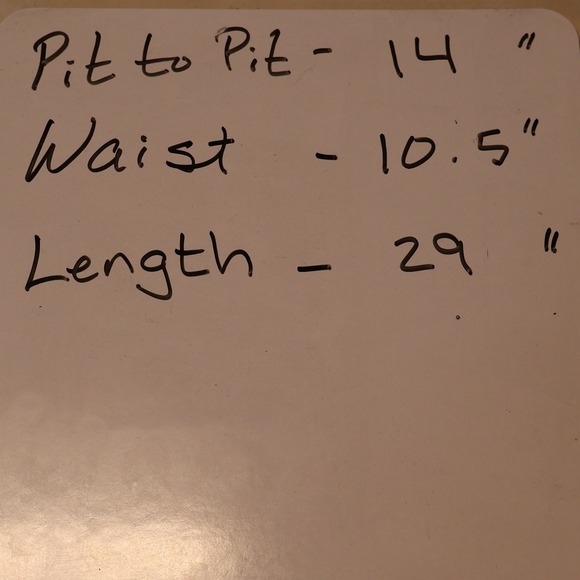 Pit to Pit - 14 "
Waist - 10.5"
Length - 29 "